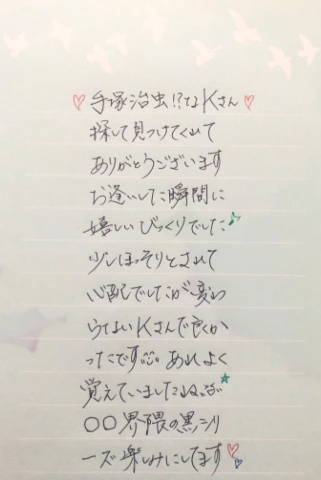 ♡手塚治虫!?なKさん♡
探して見つけてくれて
ありがとうございます
お逢いした瞬間に
嬉しいびっくりでした♪
少しほっそりとされて
心配でしたが変わ
らないKさんで良か
ったです😊。あれ、よく
覚えていましたね。★
〇〇界隈の黒シリ
ーズ楽しみにしてます♡♡